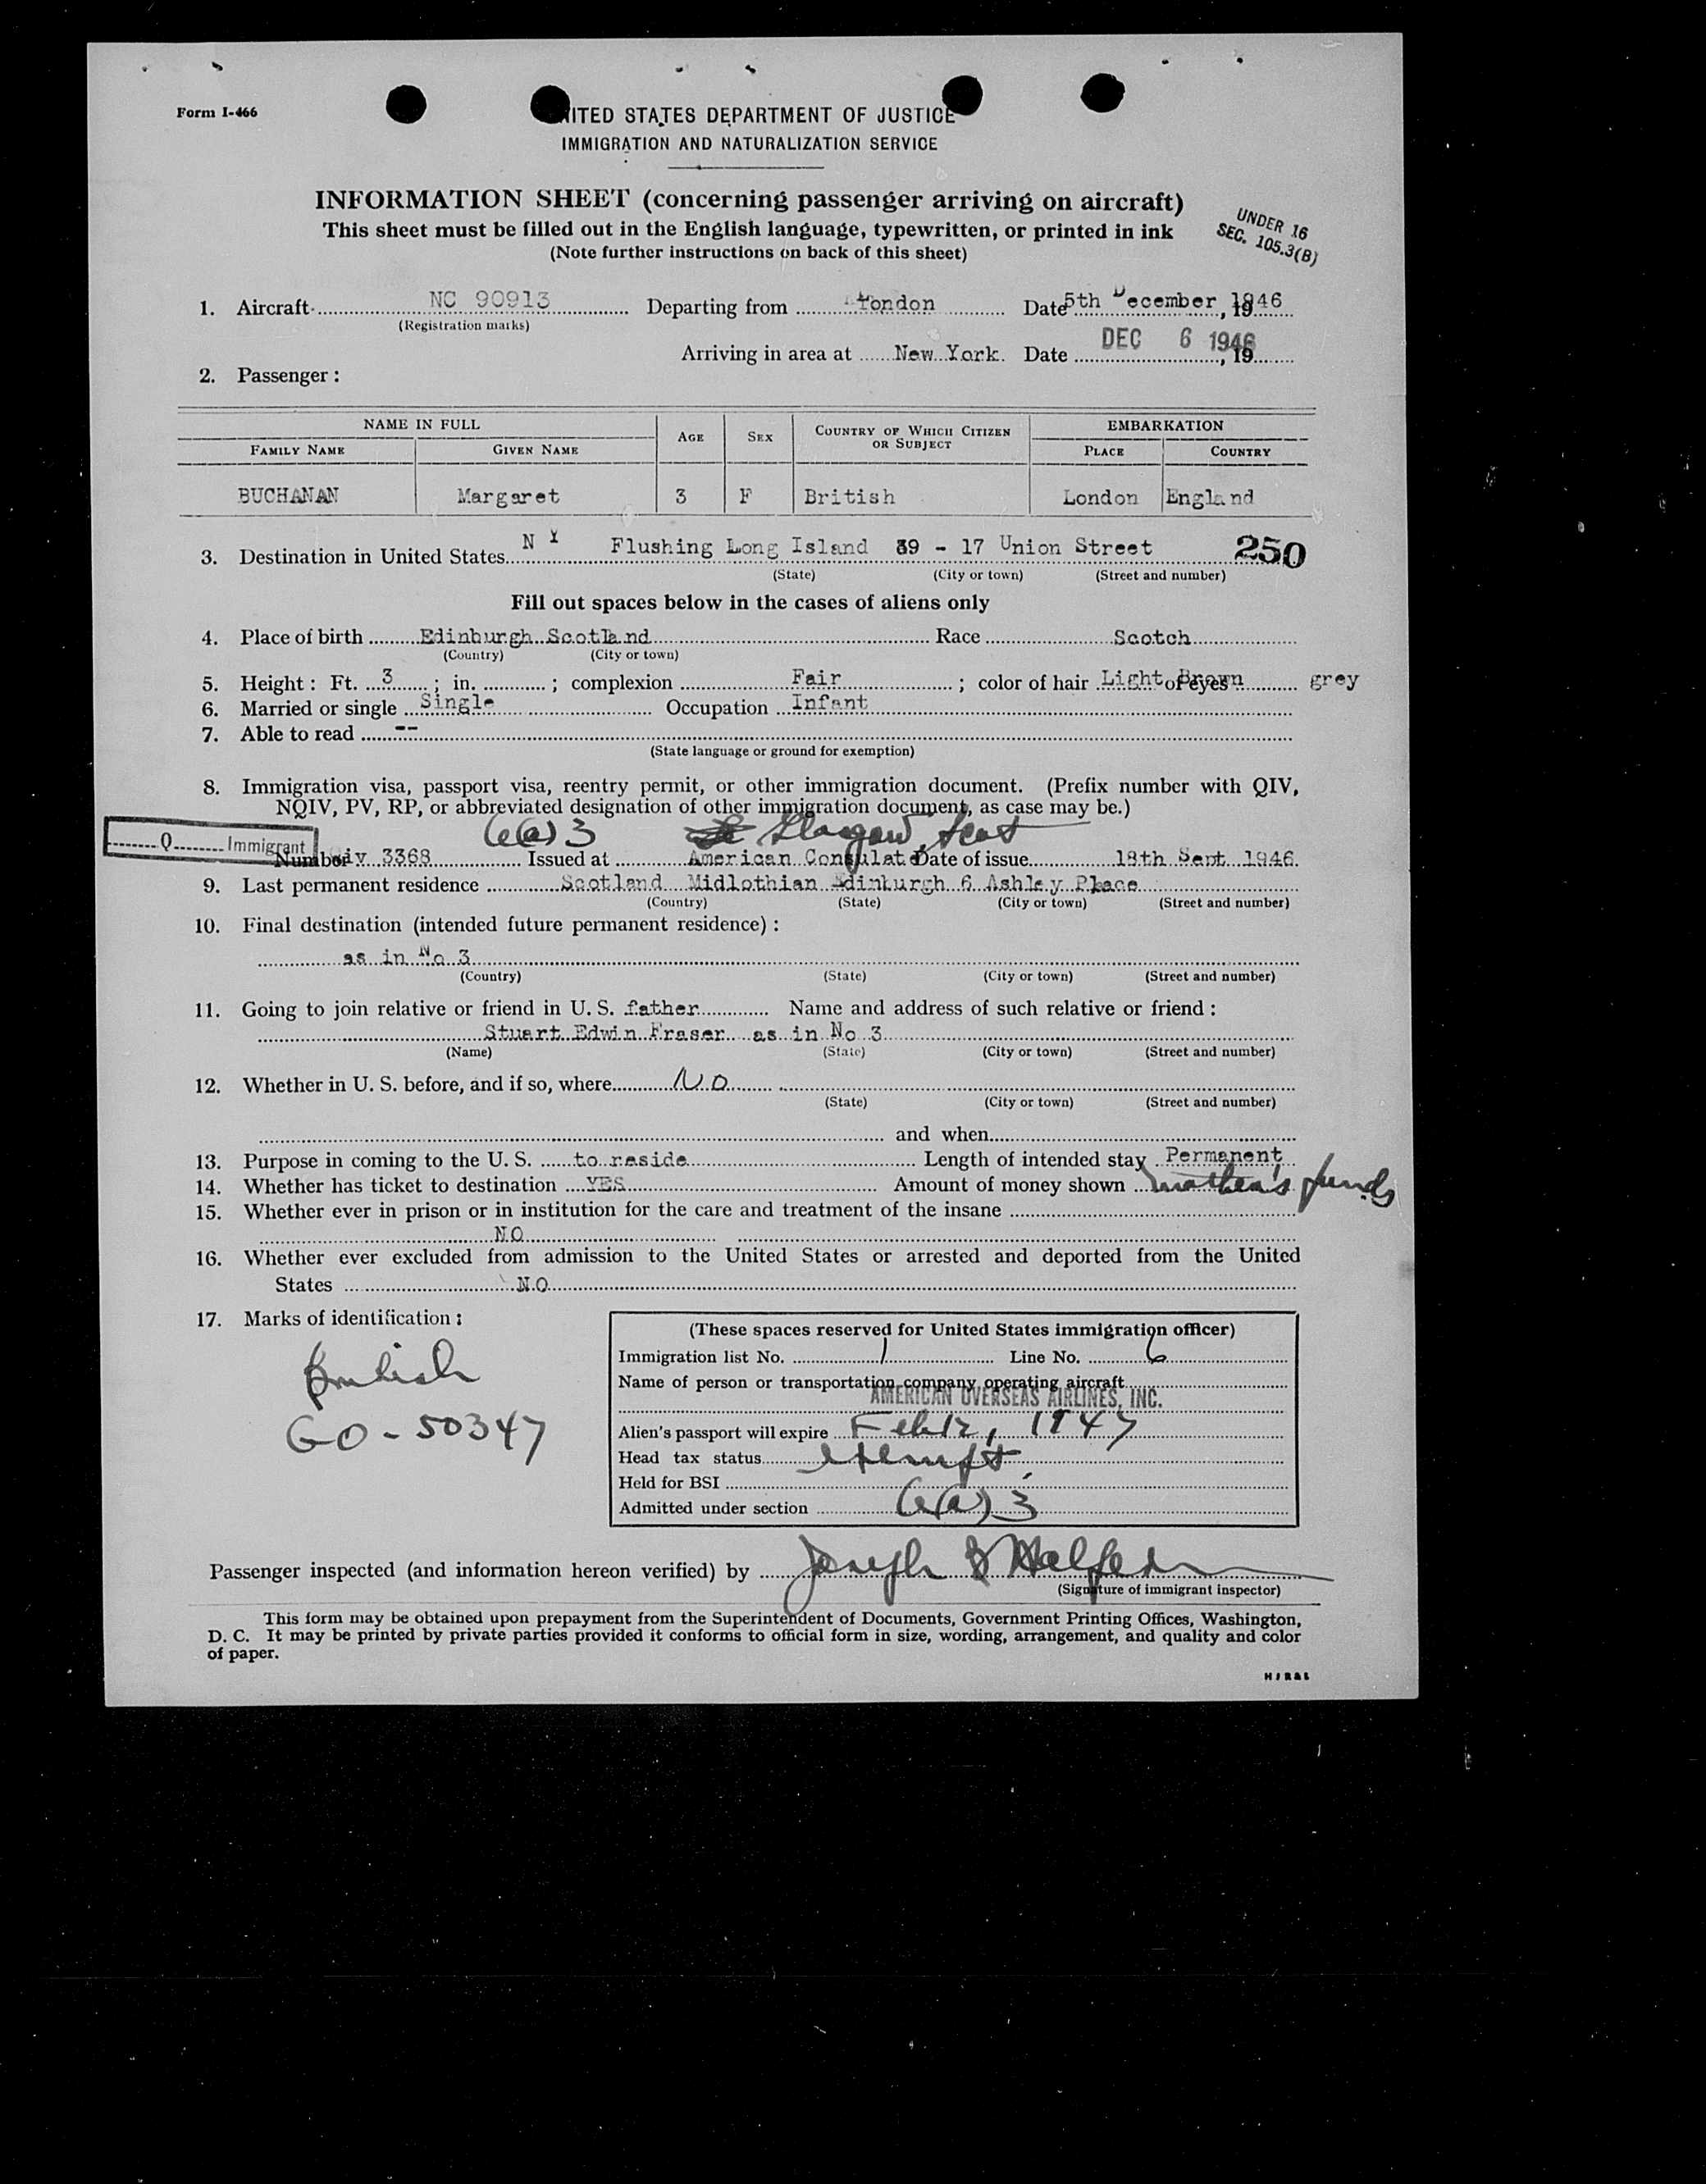 Form I-466
UNITED STATES DEPARTMENT OF JUSTICE
IMMIGRATION AND NATURALIZATION SERVICE
INFORMATION SHEET (concerning passenger arriving on aircraft)
This sheet must be filled out in the English language, typewritten, or printed in ink
(Note further instructions on back of this sheet)
UNDER 16
SEC. 105.3(B)
1. Aircraft NC 90913 Departing from London Date 5th December, 1946
(Registration marks)
Arriving in area at New York. Date DEC 6 1946, 19
2. Passenger :
NAME IN FULL AGE SEX COUNTRY OF WHICH CITIZEN OR SUBJECT EMBARKATION
FAMILY NAME GIVEN NAME PLACE COUNTRY
BUCHANAN Margaret 3 F British London England
3. Destination in United States N Y Flushing Long Island 39 - 17 Union Street 250
(State) (City or town) (Street and number)
Fill out spaces below in the cases of aliens only
4. Place of birth Edinburgh Scotland Race Scotch
(Country) (City or town)
5. Height : Ft. 3 ; in. ; complexion Fair ; color of hair Light Brown of eyes grey
6. Married or single Single Occupation Infant
7. Able to read --
(State language or ground for exemption)
8. Immigration visa, passport visa, reentry permit, or other immigration document. (Prefix number with QIV,
NQIV, PV, RP, or abbreviated designation of other immigration document, as case may be.)
Q Immigrant 6(a) 3 Glasgow, Scot
Number iv 3368 Issued at American Consulat Date of issue 18th Sept 1946.
9. Last permanent residence Scotland Midlothian Edinburgh 6 Ashley Place
(Country) (State) (City or town) (Street and number)
10. Final destination (intended future permanent residence) :
as in No 3
(Country) (State) (City or town) (Street and number)
11. Going to join relative or friend in U. S. father Name and address of such relative or friend :
Stuart Edwin Fraser as in No 3
(Name) (State) (City or town) (Street and number)
12. Whether in U. S. before, and if so, where NO
(State) (City or town) (Street and number)
and when
13. Purpose in coming to the U. S. to reside Length of intended stay Permanent
14. Whether has ticket to destination YES Amount of money shown mother's funds
15. Whether ever in prison or in institution for the care and treatment of the insane
NO
16. Whether ever excluded from admission to the United States or arrested and deported from the United
States NO
17. Marks of identification :
British
GO - 50347
(These spaces reserved for United States immigration officer)
Immigration list No. 1 Line No. 6
Name of person or transportation company operating aircraft
AMERICAN OVERSEAS AIRLINES, INC.
Alien's passport will expire Feb 12, 1947
Head tax status exempt
Held for BSI
Admitted under section 6(a) 3
Passenger inspected (and information hereon verified) by Joseph Halfern
(Signature of immigrant inspector)
This form may be obtained upon prepayment from the Superintendent of Documents, Government Printing Offices, Washington,
D. C. It may be printed by private parties provided it conforms to official form in size, wording, arrangement, and quality and color
of paper.